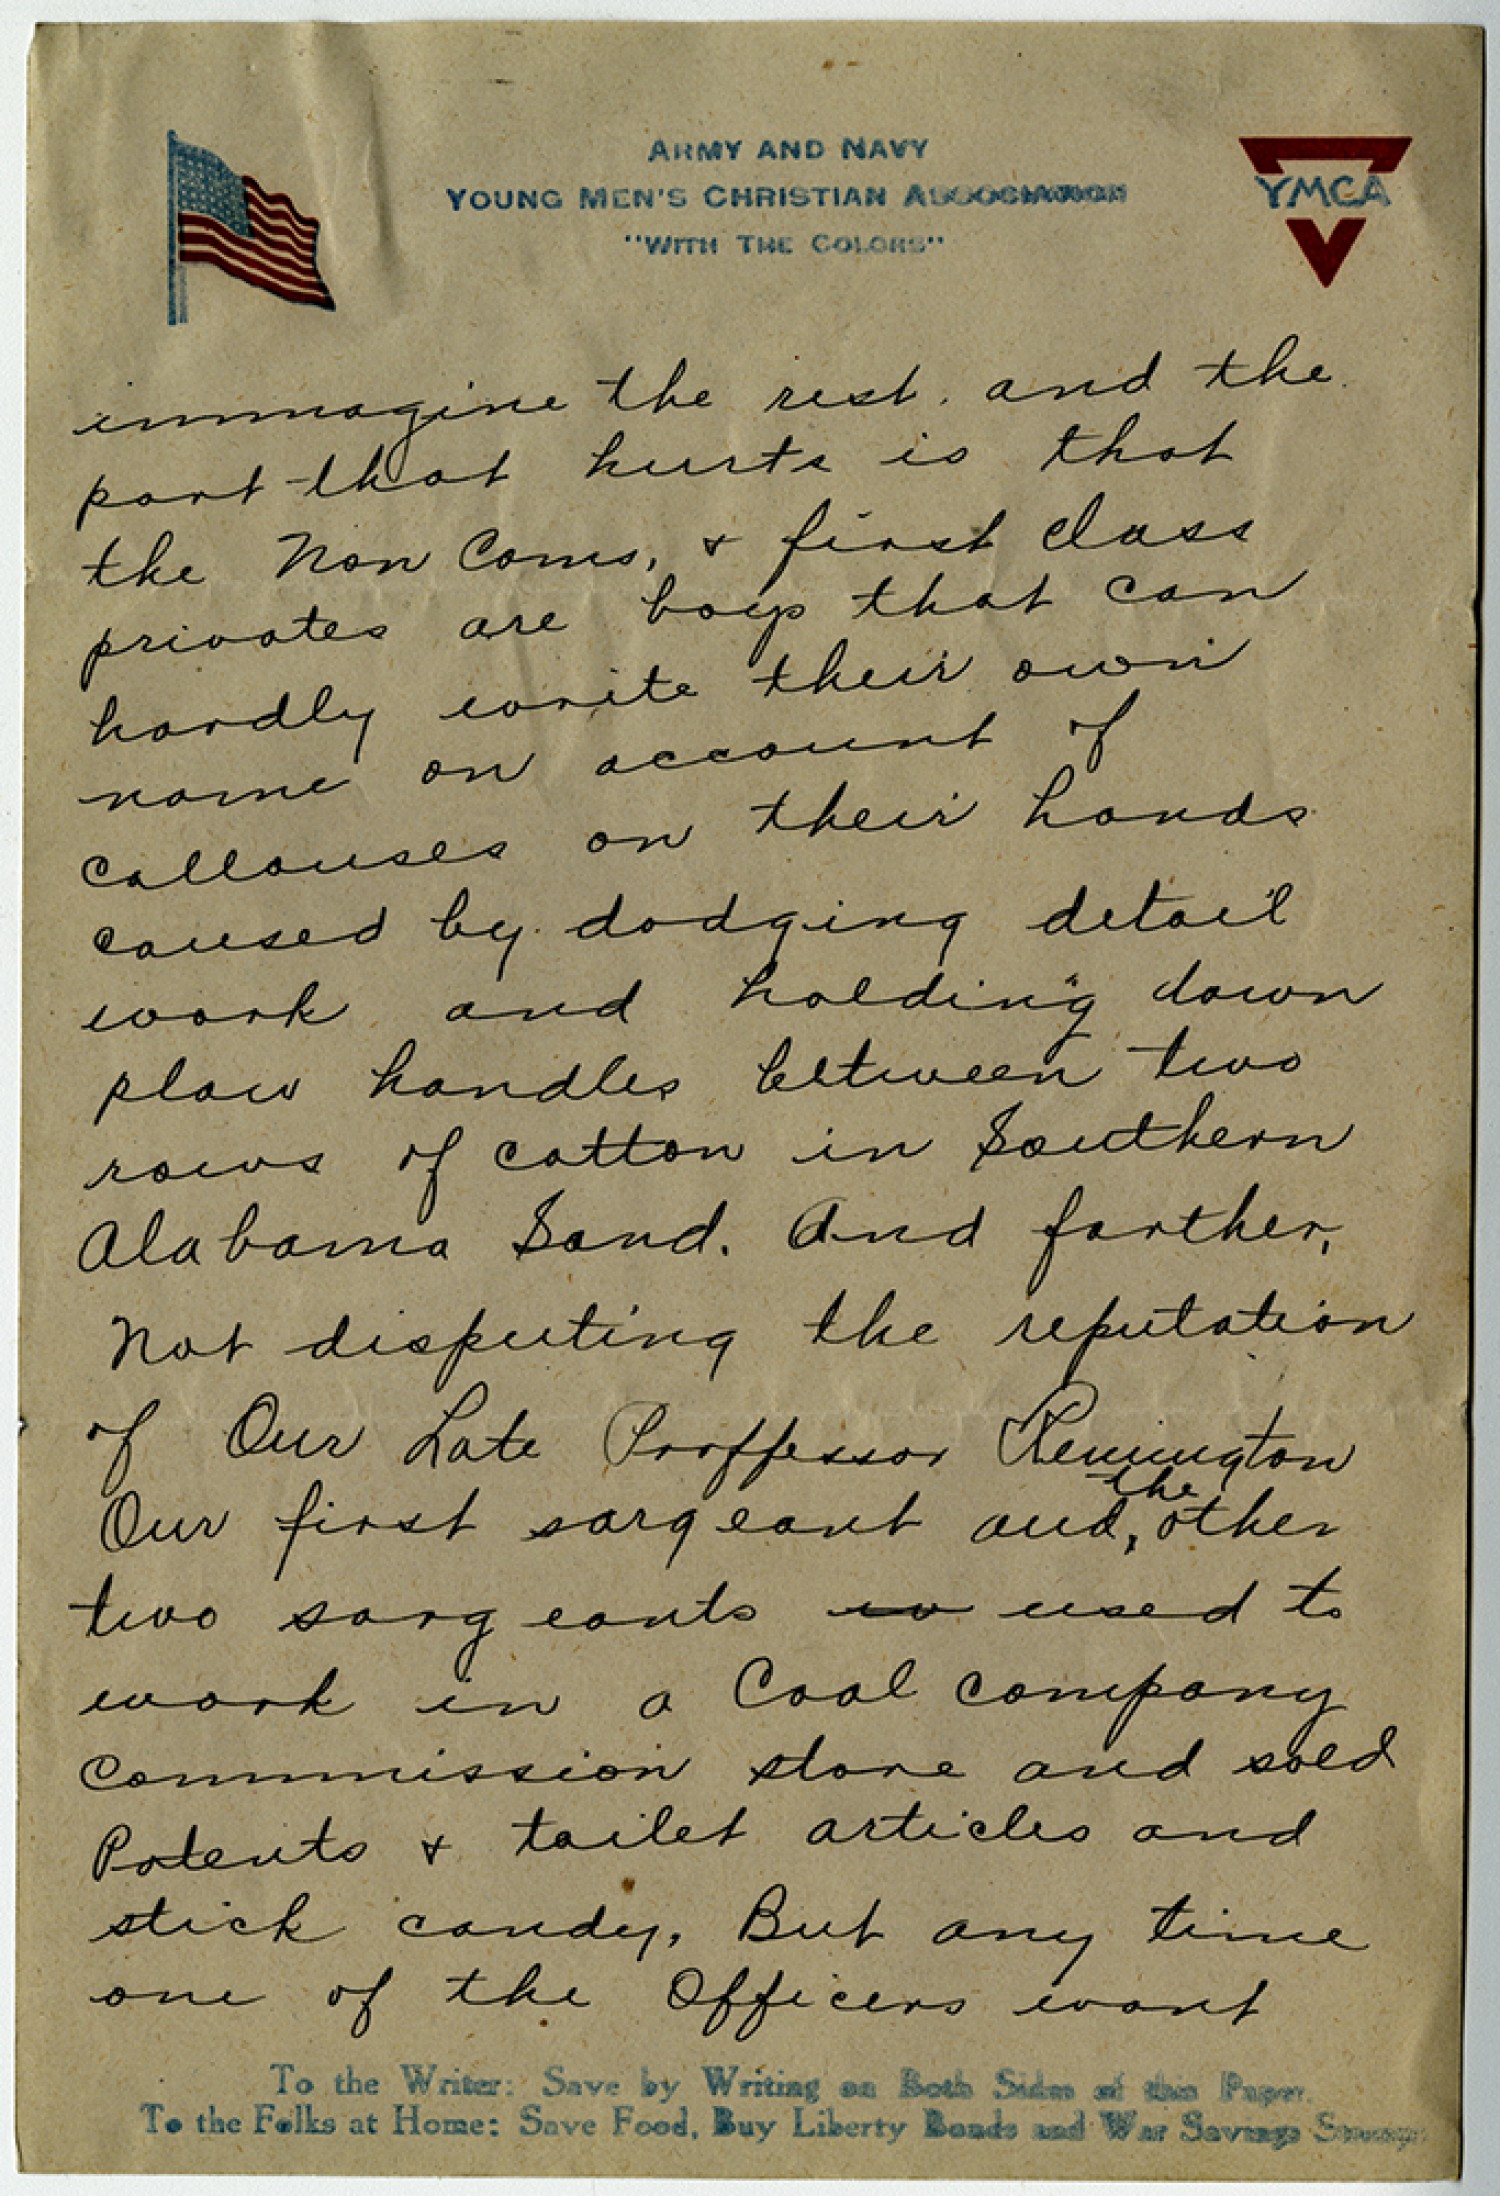 ARMY AND NAVY
YOUNG MEN'S CHRISTIAN ASSOCIATION
"WITH THE COLORS"
YMCA
immagine the rest. and the
part that hurts is that
the Non Coms, & first class
privates are boys that can
hardly write their own
name on account of
callouses on their hands
caused by dodging detail
work and holding down
plow handles between two
rows of cotton in Southern
Alabama Sand. And farther,
Not disputing the reputation
of Our Late Proffessor Remington
Our first sargeant and, the other
two sargeants w used to
work in a Coal company
Commission store and sold
Patents & toilet articles and
stick candy, But any time
one of the Officers want
To the Writer: Save by Writing on Both Sides of this Paper.
To the Folks at Home: Save Food, Buy Liberty Bonds and War Savings Stamps